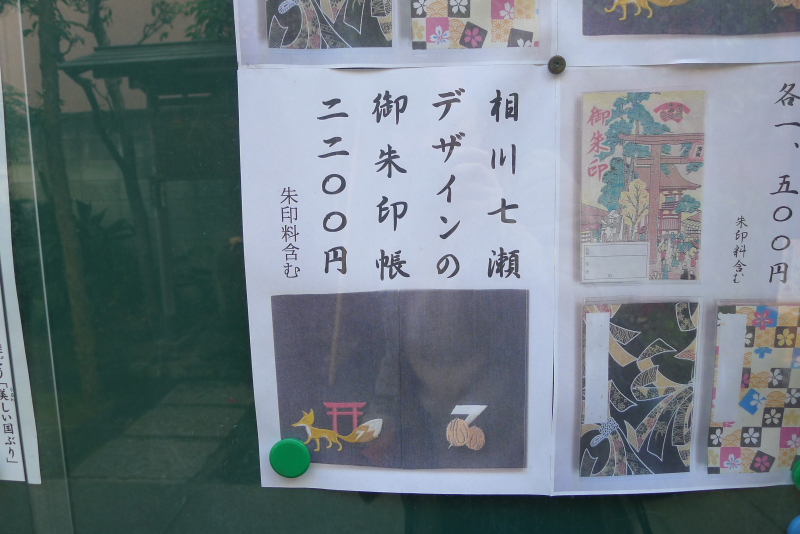 各一、五〇〇円
朱印料含む
御朱印
相川七瀬
デザインの
御朱印帳
二二〇〇円
朱印料含む
7
「美しい国ぶり」